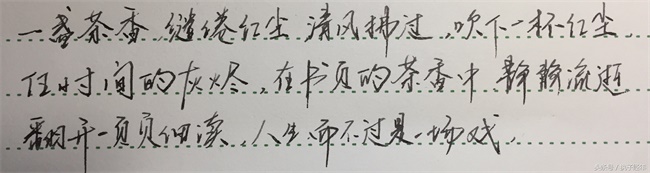 一盏茶香,缱绻红尘 清风拂过,吹下一杯红尘
任时间的灰烬,在书页的茶香中 静静流逝
翻开一页页细读,人生而不过是一场戏,